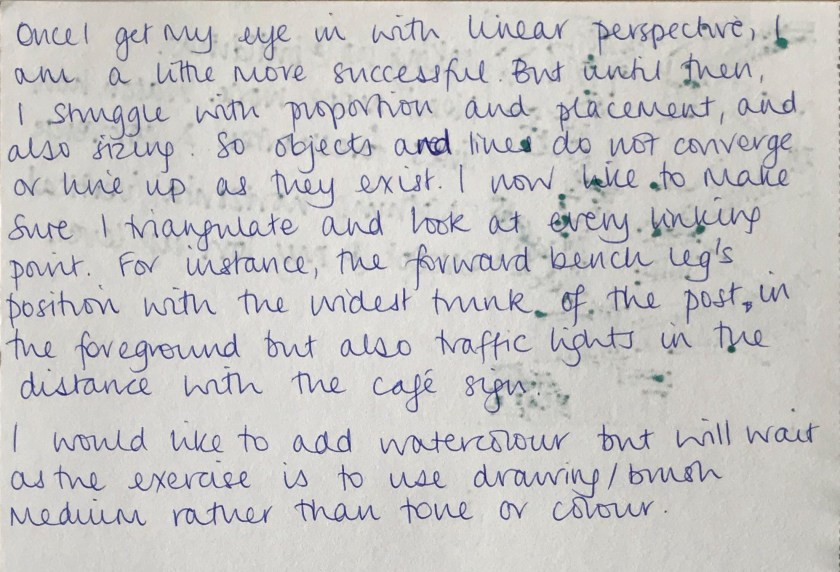 Once I get my eye in with linear perspective, I
am a little more successful. But until then,
I struggle with proportion and placement, and
also sizing. So objects and lines do not converge
or line up as they exist. I now like to make
sure I triangulate and look at every linking
point. For instance, the forward bench leg's
position with the widest trunk of the post, in
the foreground but also traffic lights in the
distance with the café sign.
I would like to add watercolour but will wait
as the exercise is to use drawing/brush
medium rather than tone or colour.